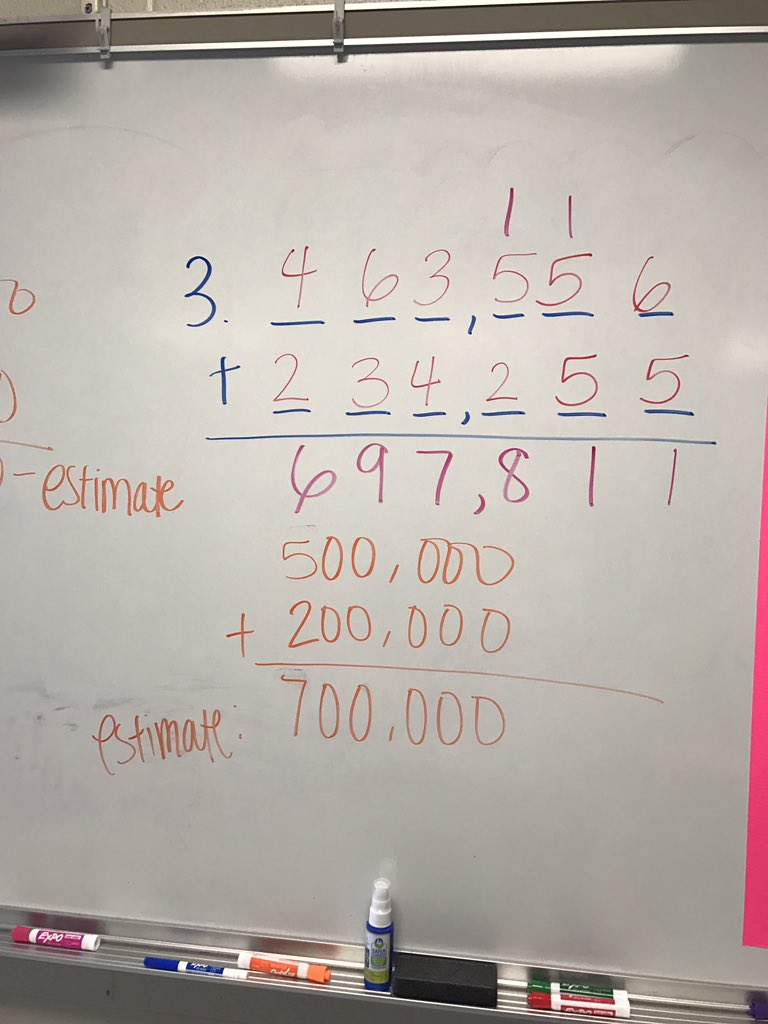 1 1
3. 4 6 3, 5 5 6
+ 2 3 4, 2 5 5
- estimate
6 9 7, 8 1 1
500,000
+ 200,000
estimate: 700,000
EXPO
EXPO